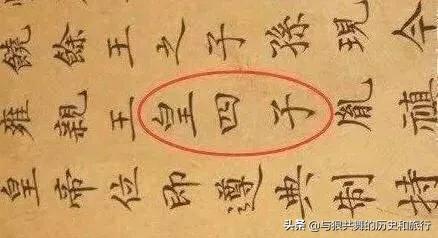 饒餘王之子孫現今
雍親王皇四子胤禛
皇帝位即遵典制持
头条 @与狼共舞的历史和旅行